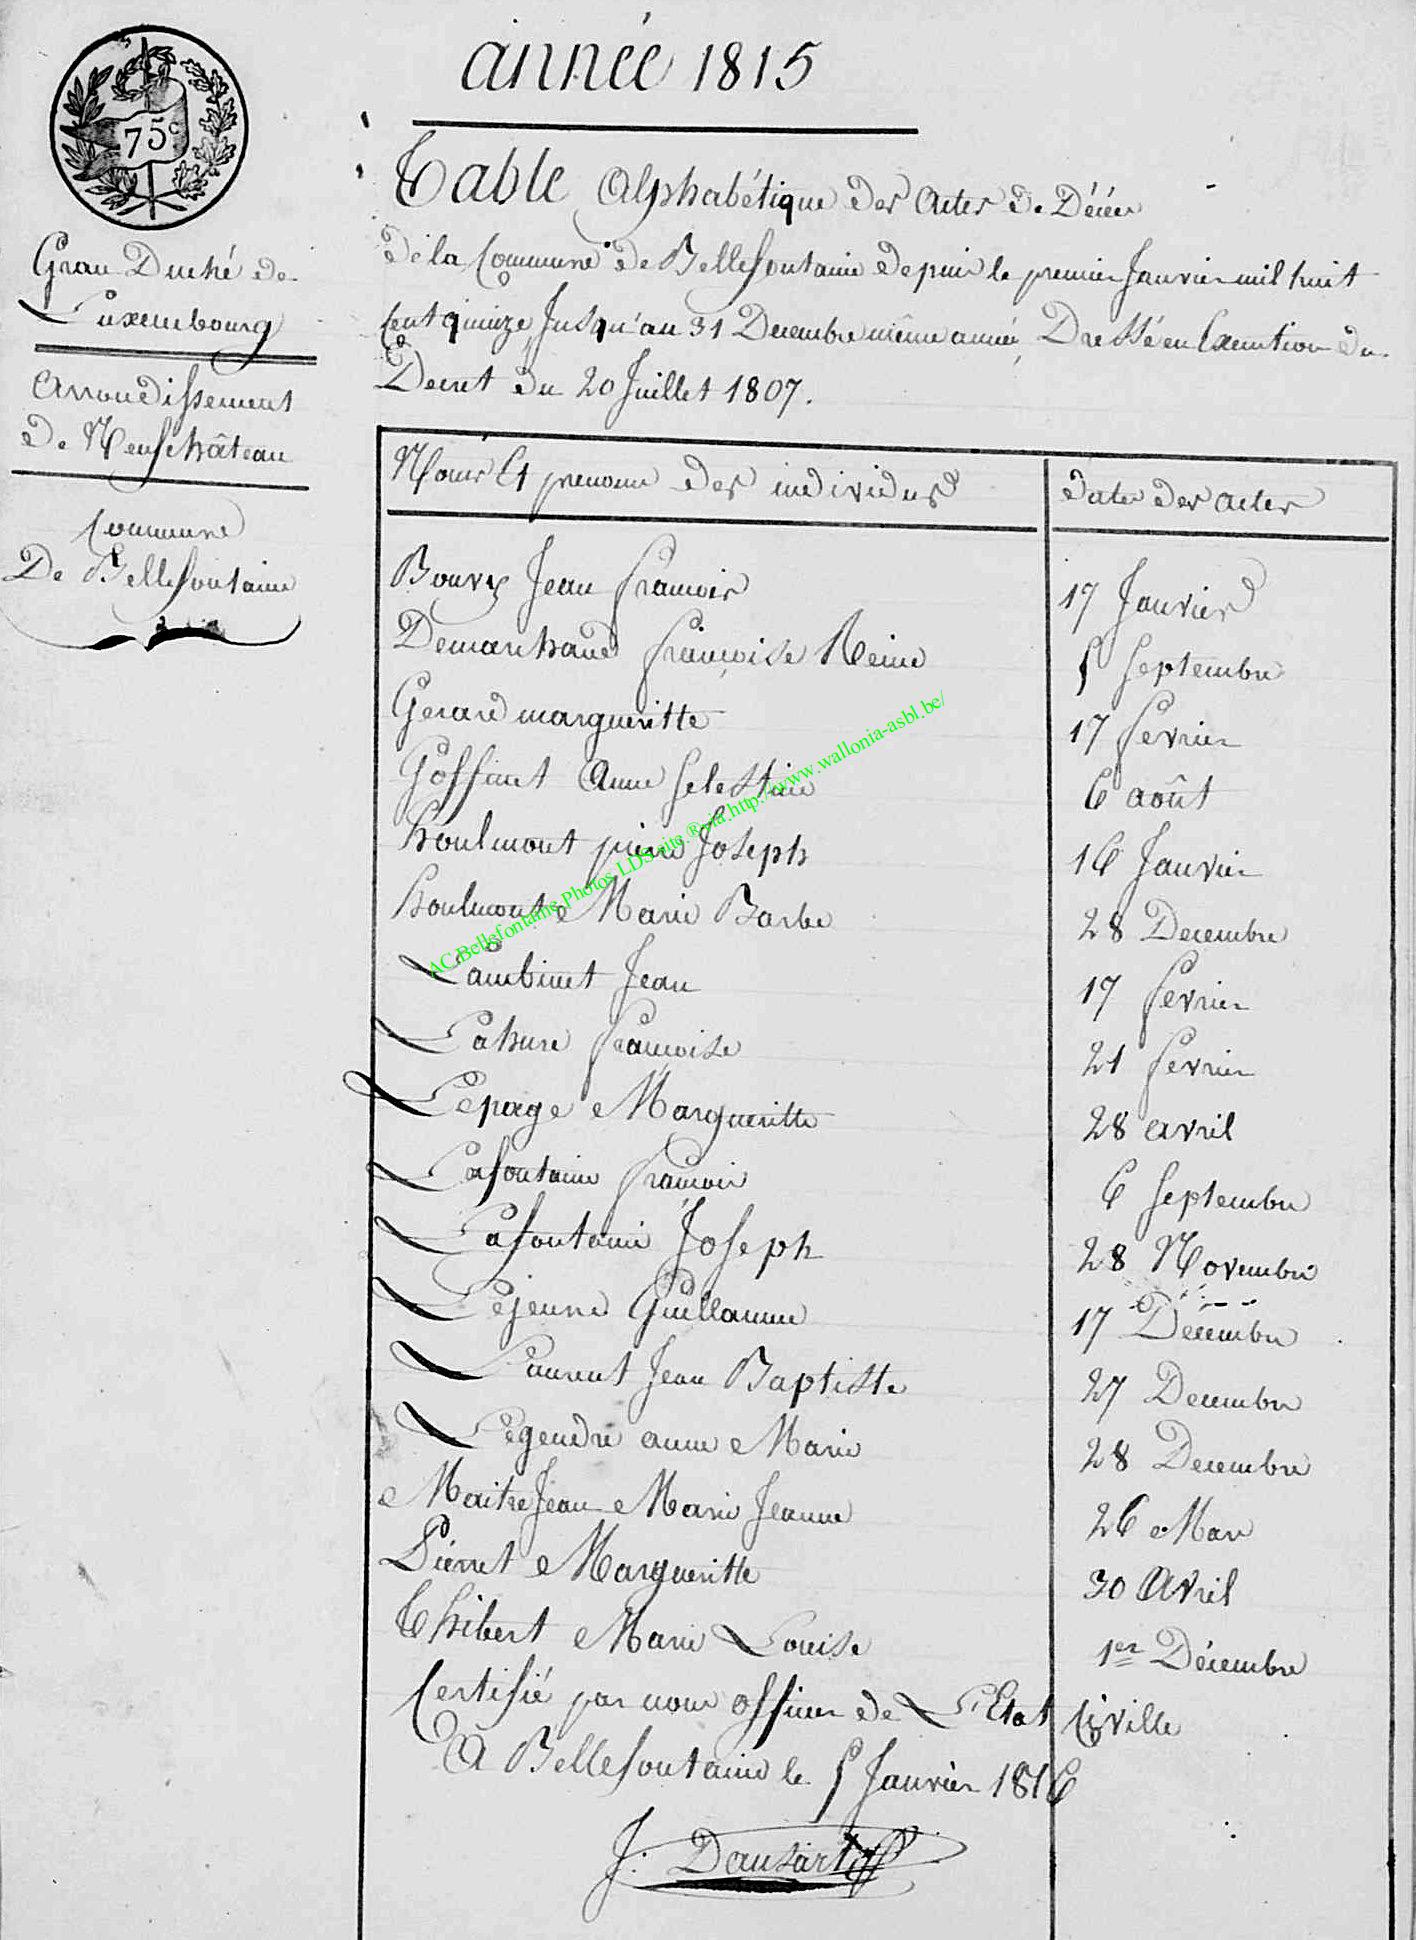 année 1815
75c
Grau Duché de
Luxembourg
Arrondissement
de Neufchâteau
Commune
De Bellefontaine
Table Alphabétique des Actes de Décés
de la Commune de Bellefontaine depuis le premier Janvier mil huit
Cent quinze Jusqu'au 31 Decembre même année, Dressé en Execution du
Decret du 20 Juillet 1807.
Noms Et prenoms des individus
date des actes
Bouvy Jean francois
17 Janvier
Demanhaud françoise Reine
5 Septembre
Gerard margueritte
17 fevrier
Goffinet Anne Selestine
6 août
houlmont pierre Joseph
16 Janvier
houlmont Marie Barbe
28 Decembre
Lambinet Jean
17 fevrier
Lahure francoise
21 fevrier
Lepage Margueritte
28 avril
Lafontaine francois
6 Septembre
Lafontaine Joseph
28 Novembre
Lejeune Guillaume
17 Décembre
Laurent Jean Baptiste
27 Decembre
Legendre anne Marie
28 Decembre
Maitrejean Marie Jeanne
26 Mars
Pierret Margueritte
30 Avril
Thibert Marie Louise
1er Décembre
Certifié par nous officier de L'Etat Civille
A Bellefontaine le 5 Janvier 1816
J. Dausart
AC.Bellefontaine.Photos LDS site.®.via.http://www.wallonia-asbl.be/